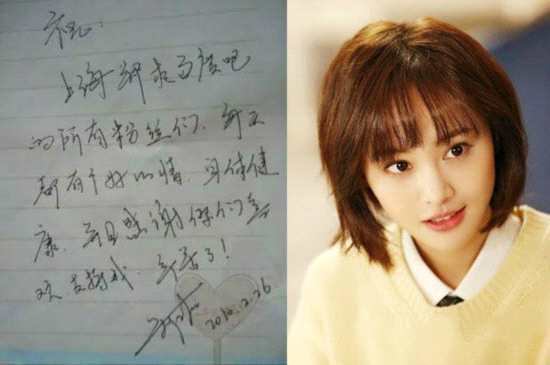 祝:
上海郑爽百度吧
的所有粉丝们,每天
都有个好心情,身体健
康.并且感谢你们喜
欢支持我.辛苦了!
2010.2.26